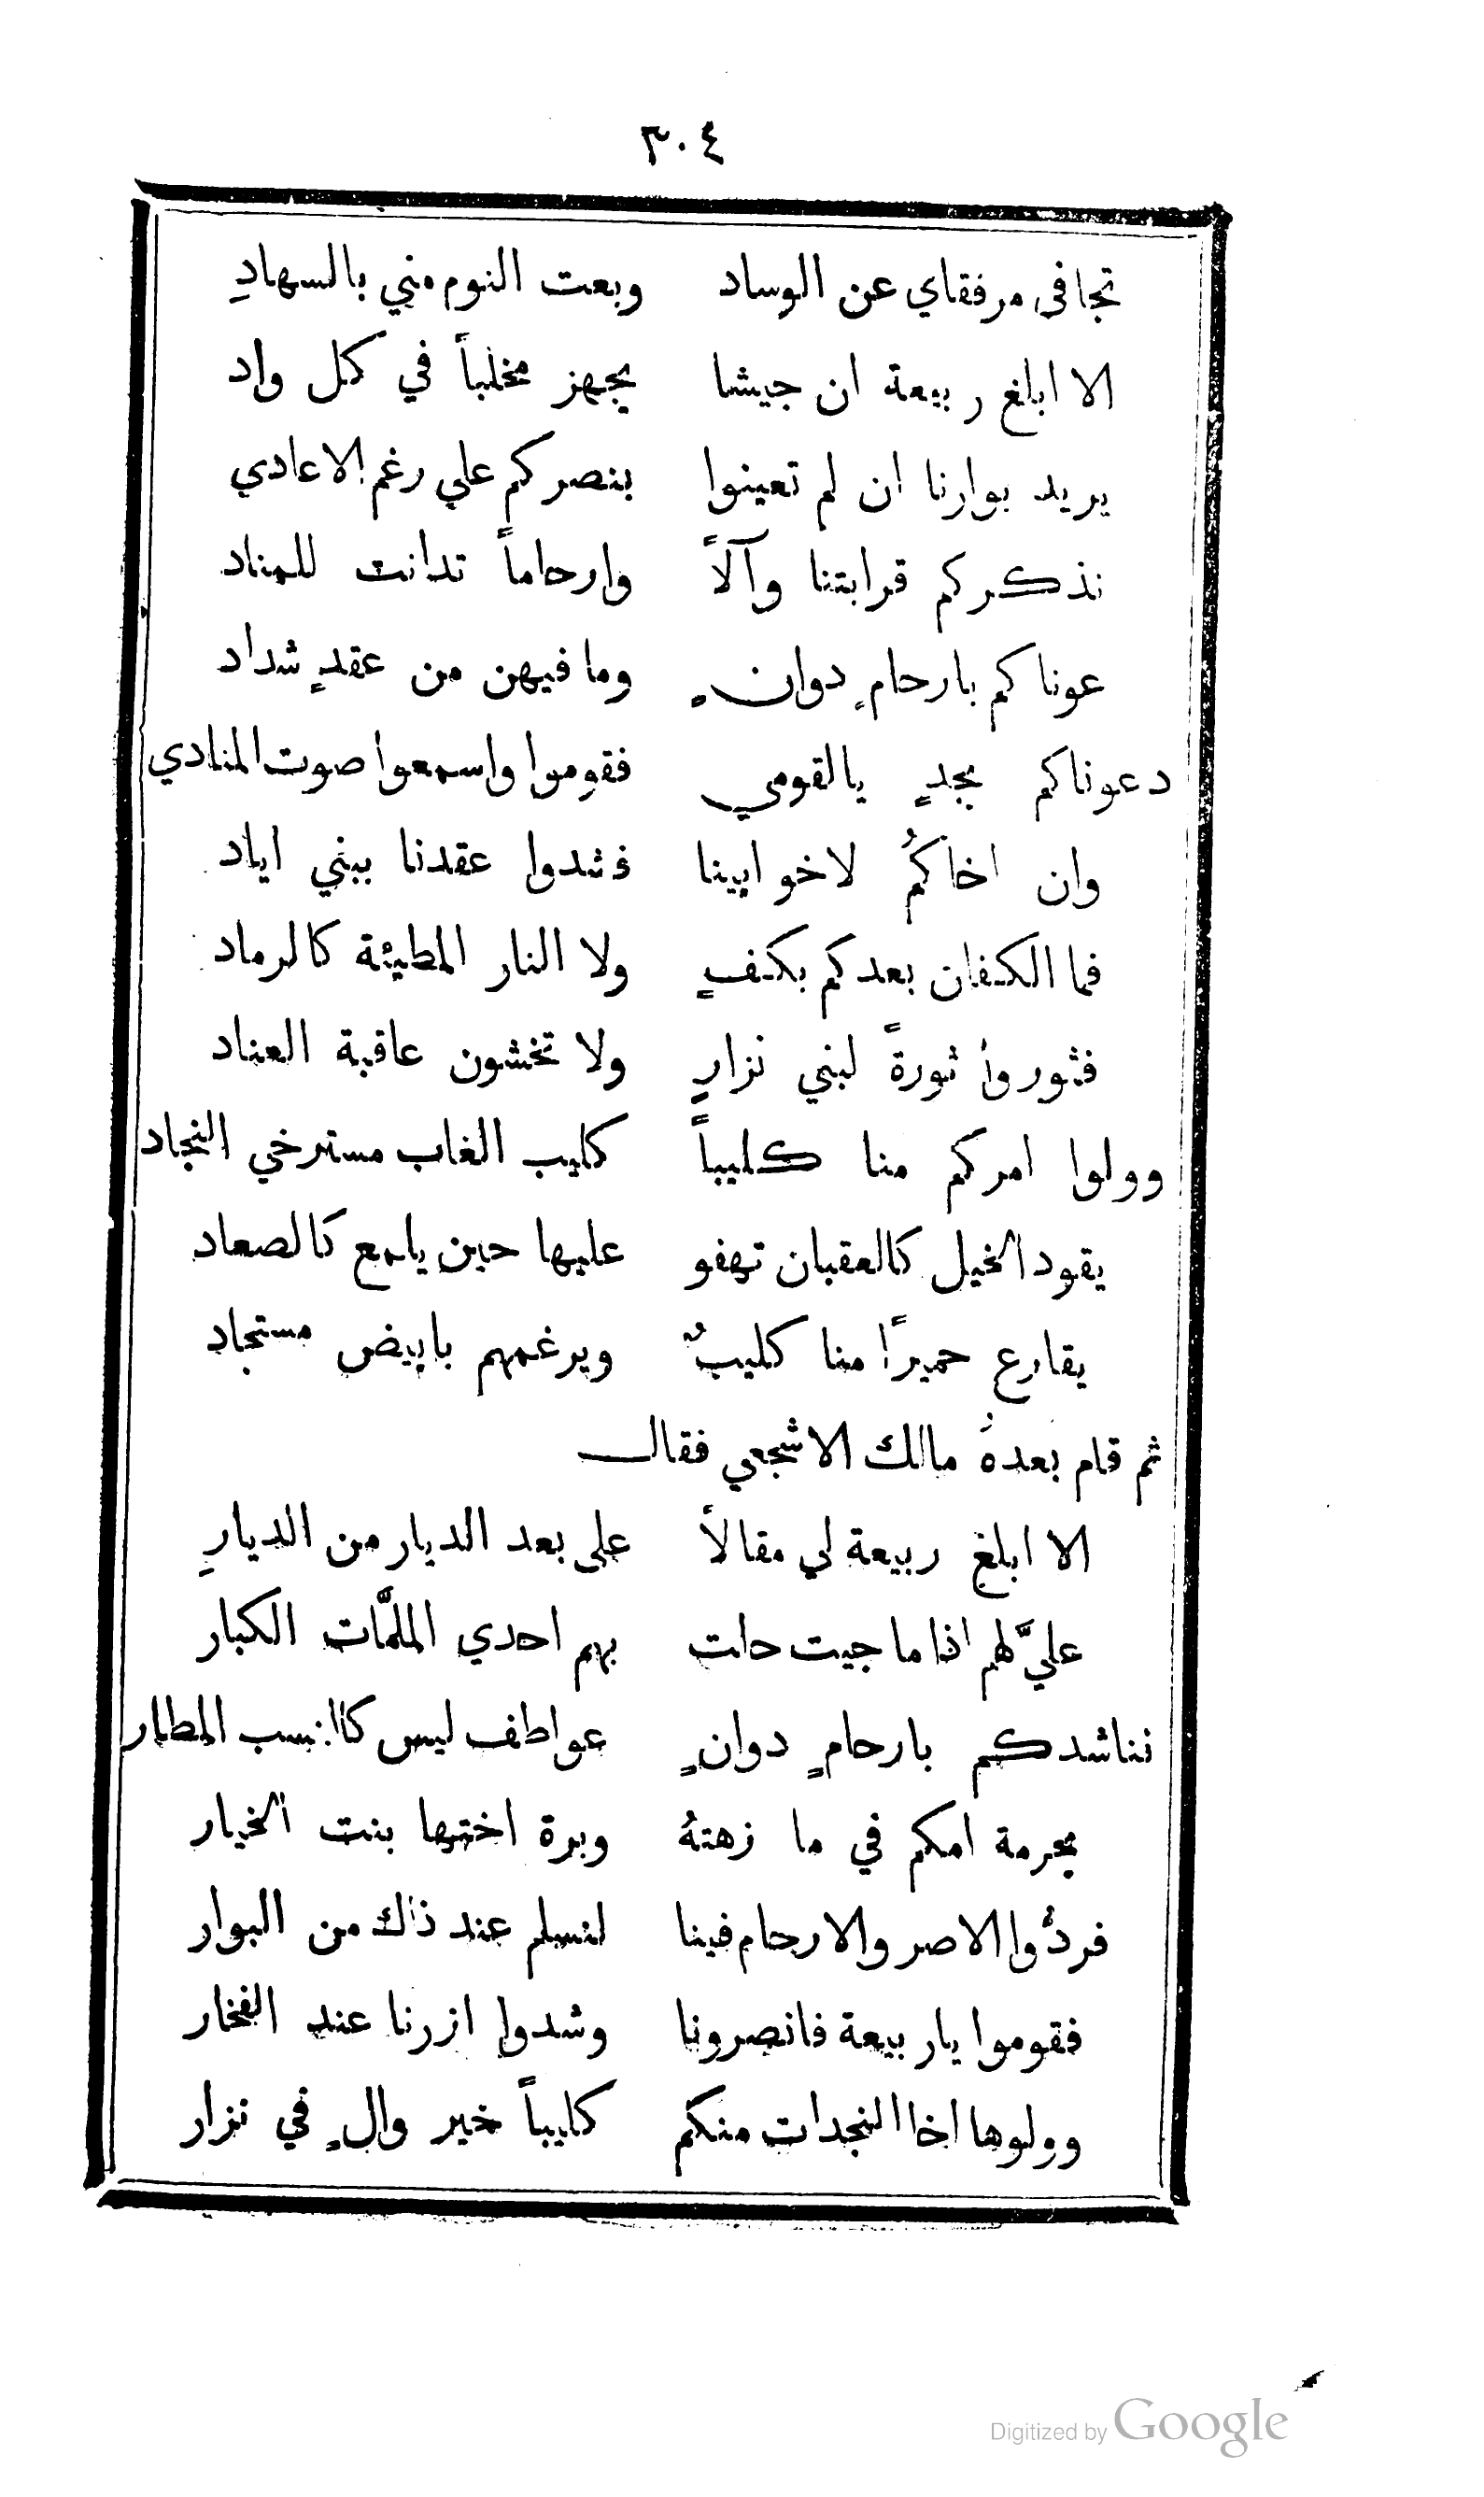 ٣٠٤
تجافى مرفقاي عن الوساد وبعت النوم مني بالسهادِ
الا ابلغ ربيعة ان جيشا يجهز مخلباً في كل واد
يريد بوارنا ان لم تعينوا بنصركم علي رغم الاعادي
نذكركم قرابتنا وآلاً وارحاماً تدانت للمناد
عوناكم بارحامٍ دوانٍ وما فيهن من عقدٍ شداد
دعوناكم بجدٍ يالقومي فقوموا واسمعوا صوت المنادي
وان اخاكُم لاخو ابينا فشدوا عقدنا ببني اياد
فما الكفان بعدكم بكفٍ ولا النار المطيئة كالرماد
فثوروا ثورةً لبني نزارٍ ولا تخشون عاقبة العناد
وولوا امركم منا كليباً كليب الغاب مسترخي النجاد
يقود الخيل كالعقبان تهفو عليها حين يلمع كالصعاد
يقارع حميرًا منا كليبٌ ويرغمهم بابيض مستجاد
ثم قام بعدهُ مالك الاشجعي فقال
الا ابلغ ربيعة لي مقالاً على بعد الديار من الديارِ
عليَّ لهم اذا ما جيت حلت بهم احدي الملمَّات الكبار
نناشدكم بارحامٍ دوانٍ عواطف ليس كالنسب المطار
بحرمة امكم في ما زهتهُ وبرة اختها بنت الخيار
فردُّوا الاصر والارحام فينا لنسلم عند ذاك من البوار
فقوموا يا ربيعة فانصرونا وشدوا ازرنا عند الفخار
وولوها اخا النجدات منكم كليباً خير والٍ في نزار
Digitized by Google